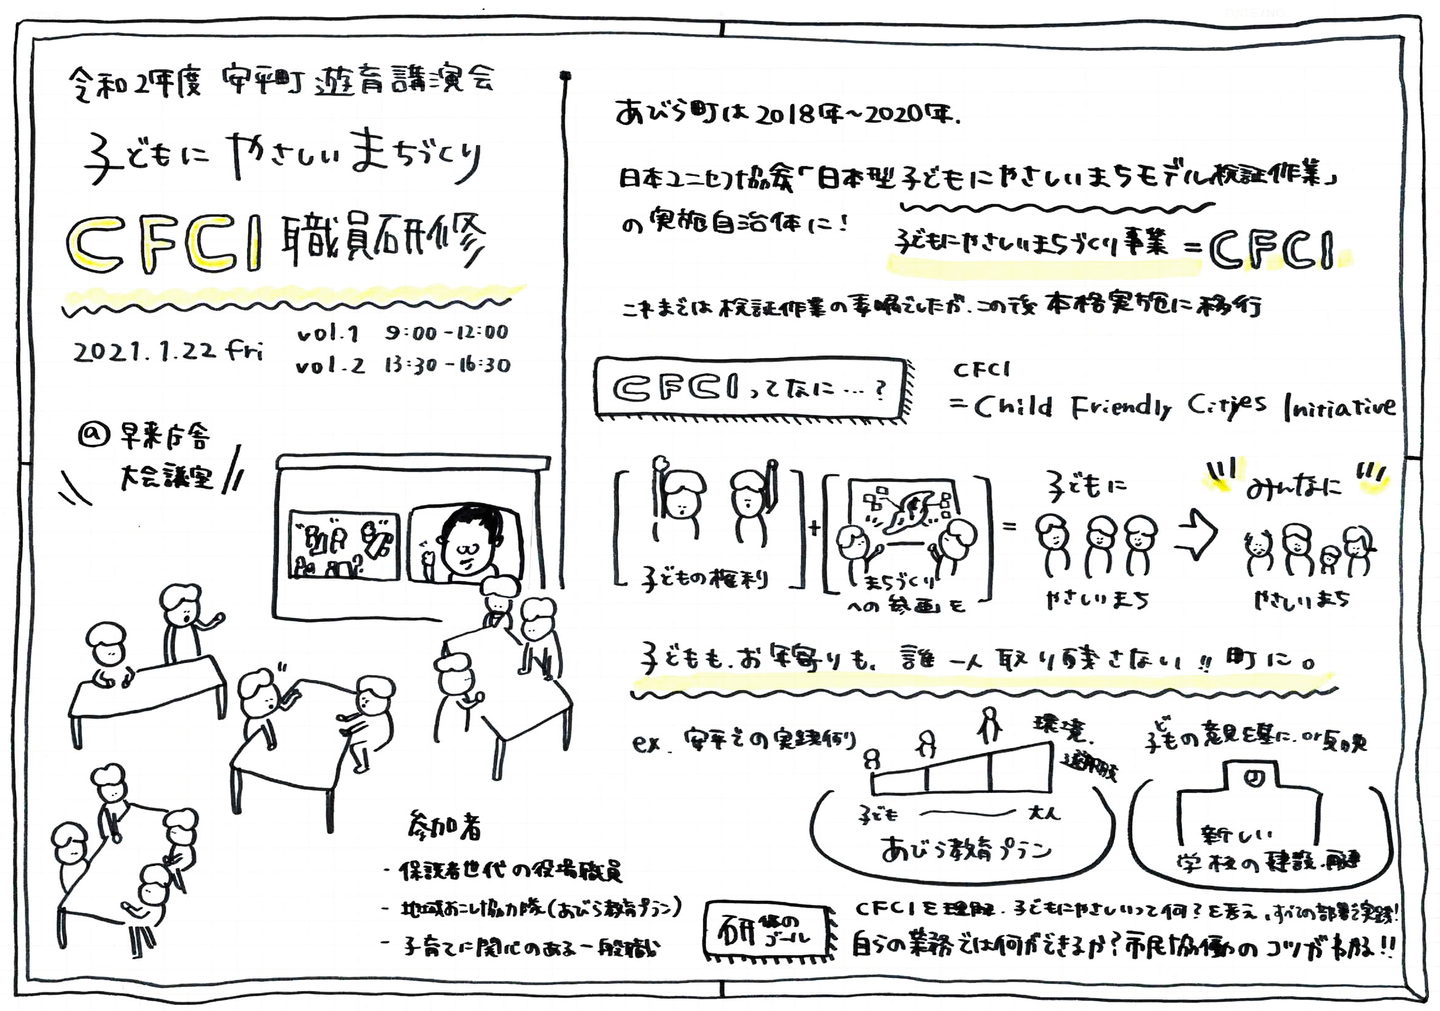 令和2年度 安平町 遊育講演会
子どもに やさしい まちづくり
CFCI 職員研修
2021.1.22 fri
vol.1 9:00-12:00
vol.2 13:30-16:30
@早来庁舎
大会議室
参加者
- 保護者世代の役場職員
- 地域おこし協力隊(あびら教育プラン)
- 子育てに関心のある一般職
あびら町は2018年~2020年.
日本ユニセフ協会「日本型子どもにやさしいまちモデル検証作業」
の実施自治体に!
子どもにやさしいまちづくり事業 = CFCI
これまでは検証作業の事でしたが、この後 本格実施に移行
CFCIってなに…?
CFCI
= Child Friendly Cities Initiative
子どもの権利
+
まちづくり
への参画も
=
子どもに
やさしいまち
みんなに
やさしいまち
子どもも、お年寄りも、誰一人取り残さない!! 町に。
ex. 安平での実践例
環境、
選択肢
子ども 大人
あびら教育プラン
子どもの意見を基に.or反映
新しい
学校の建設.再建
研修の
ゴール
CFCIを理解、子どもにやさしいって何?を考え、すべての部署で実践!
自らの業務では何ができるか?市民協働のコツがわかる!!